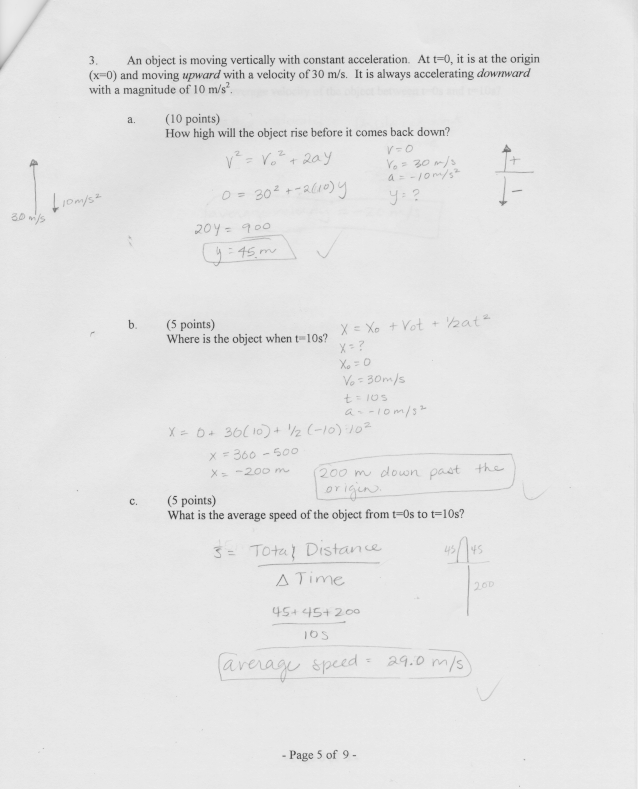 3. An object is moving vertically with constant acceleration. At t=0, it is at the origin
(x=0) and moving upward with a velocity of 30 m/s. It is always accelerating downward
with a magnitude of 10 m/s².
a. (10 points)
How high will the object rise before it comes back down?
V² = V₀² + 2ay
V=0
V₀ = 30 m/s
a = -10m/s²
y = ?
+
-
30 m/s
10m/s²
0 = 30² + -2(10)y
20y = 900
y = 45 m
b. (5 points)
Where is the object when t=10s?
X = X₀ + V₀t + ½at²
X = ?
X₀ = 0
V₀ = 30m/s
t = 10s
a = -10m/s²
X = 0 + 30(10) + ½ (-10) 10²
X = 300 - 500
X = -200 m
200 m down past the
origin.
c. (5 points)
What is the average speed of the object from t=0s to t=10s?
= Total Distance
Δ Time
45 45
200
45+45+200
10s
average speed = 29.0 m/s
- Page 5 of 9 -